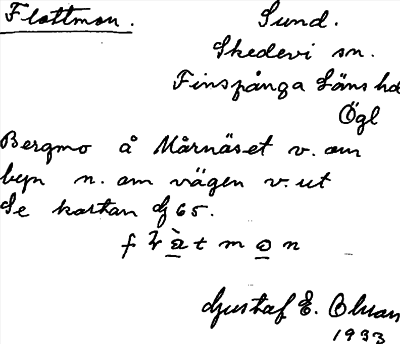 Flottmon. Sund.
Skedevi sn.
Finspånga Läns hd
Ögl
Bergmo å Mårnäset v. om
byn n. om vägen v. ut
Se kartan dj 65.
Gustaf E. Olsson
1933